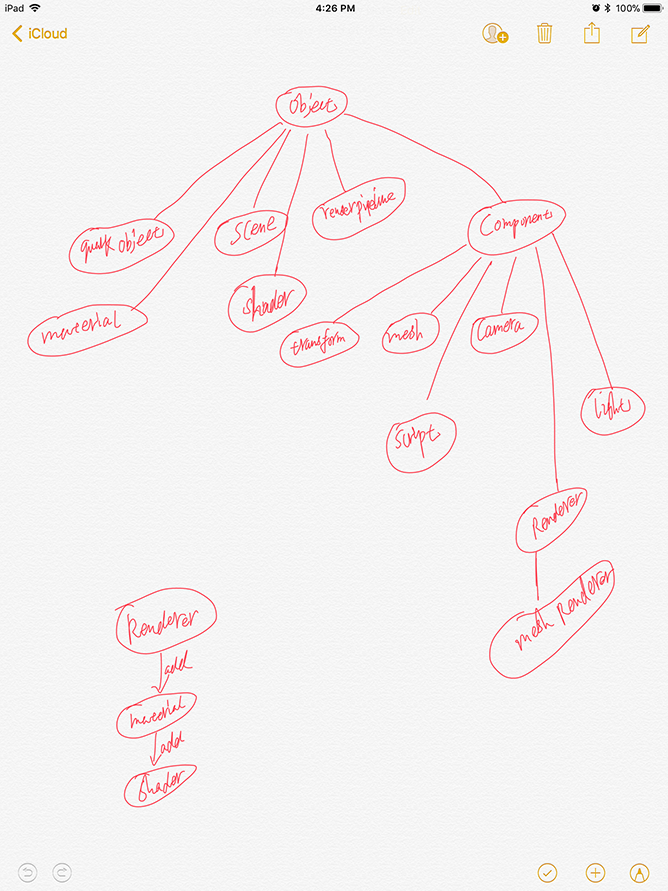 iPad
4:26 PM
100%
iCloud
Objects
Objects
Scene
renderpipeline
Components
material
shader
transform
mesh
Camera
script
light
Renderer
mesh Renderer
Renderer
add
material
add
Shader